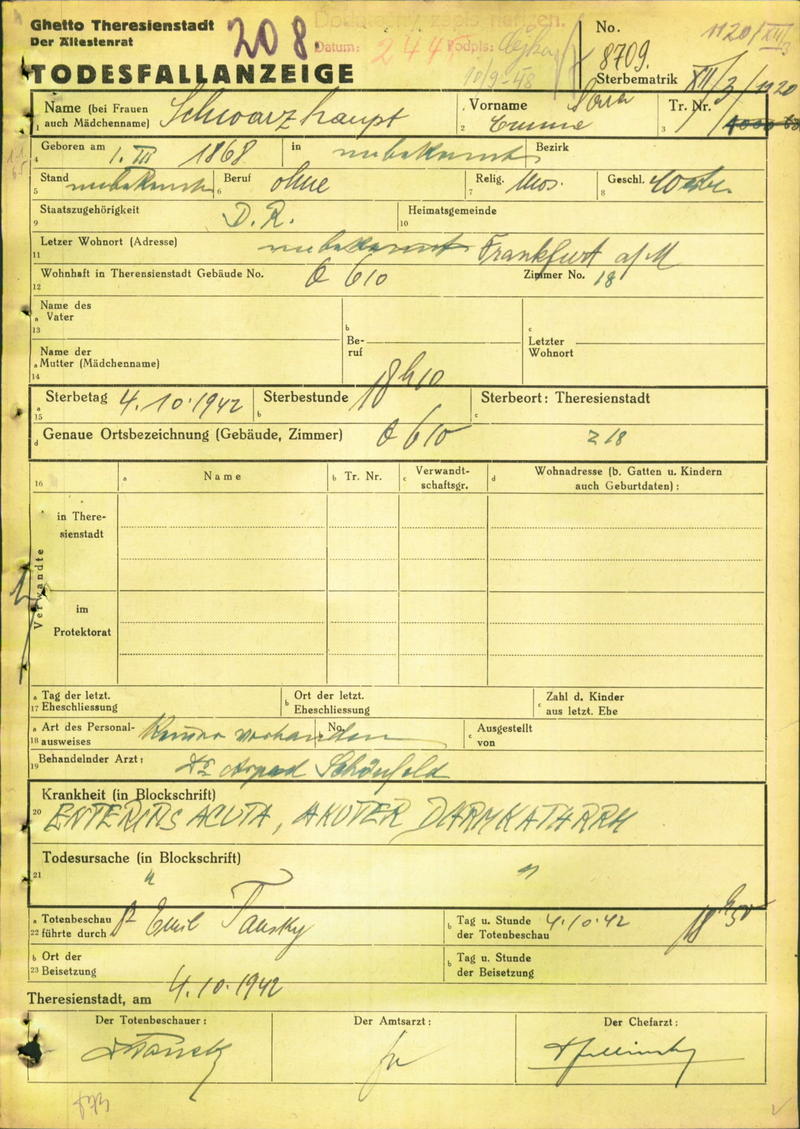 Ghetto Theresienstadt
Der Ältestenrat
208
Datum: 244
No. 8709.
1120/XII/3
10/9-48
TODESFALLANZEIGE
Sterbematrik XII/3/1120
Name (bei Frauen auch Mädchenname) Schwarzhaupt
Vorname Sara Emma
Tr. Nr.
1 2 3
Geboren am 1. III 1868 in unbekannt Bezirk
4
Stand unbekannt Beruf ohne Relig. Mos. Geschl.
5 6 7 8
Staatszugehörigkeit D. R. Heimatsgemeinde
9 10
Letzer Wohnort (Adresse) unbekannt Frankfurt a/M
11
Wohnhaft in Theresienstadt Gebäude No. Q 610 Zimmer No. 18
12
Name des
a Vater
13
b Beruf
c Letzter Wohnort
Name der
a Mutter (Mädchenname)
14
a Sterbetag 4.10.1942 Sterbestunde 18 h 10 Sterbeort: Theresienstadt
15 b c
d Genaue Ortsbezeichnung (Gebäude, Zimmer) Q 610 Z 18
16 a Name b Tr. Nr. c Verwandtschaftsgr. d Wohnadresse (b. Gatten u. Kindern auch Geburtdaten):
Verwandte
in Theresienstadt
im Protektorat
a Tag der letzt. b Ort der letzt. c Zahl d. Kinder
17 Eheschliessung Eheschliessung aus letzt. Ehe
a Art des Personal- Keiner vorhanden No. Ausgestellt
18 ausweises b c von
Behandelnder Arzt: Dr Arpad Schönfeld
19
Krankheit (in Blockschrift)
20 ENTERITIS ACUTA, AKUTER DARMKATARRH
Todesursache (in Blockschrift)
21 " "
a Totenbeschau Dr Emil Tausky b Tag u. Stunde 4.10.42 18 h 50
22 führte durch der Totenbeschau
b Ort der b Tag u. Stunde
23 Beisetzung der Beisetzung
Theresienstadt, am 4.10.1942
Der Totenbeschauer: Der Amtsarzt: Der Chefarzt: